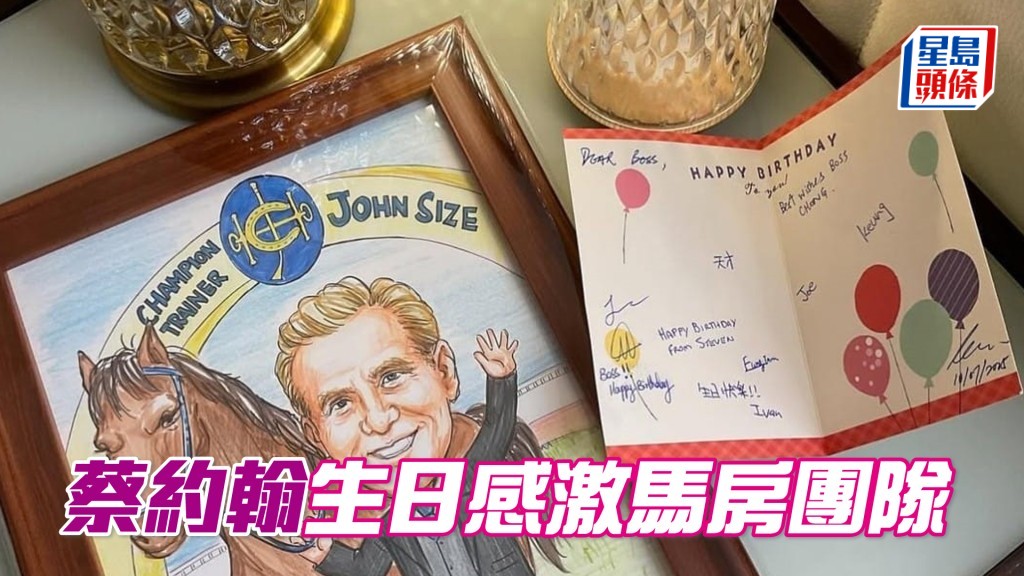 星島
頭條
CHAMPION
TRAINER
JOHN SIZE
DEAR BOSS,
HAPPY BIRTHDAY
To you!
BEST WISHES BOSS
CHEUNG.
keung
天才
Joe
HAPPY BIRTHDAY
FROM STEVEN
Boss!!
Happy Birthday
生日快樂!!
Ivan
10/07/2025
蔡約翰生日感激馬房團隊